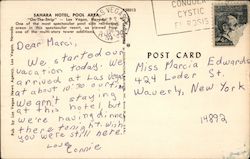 SAHARA HOTEL, POOL AREA
"On-The-Strip" — Las Vegas, Nevada
One of the most spectacular pool and
areas in this spectacular resort, as viewed from
one of the multi-story tower additions.
CONQUER
CYSTIC
FIBROSIS
POST CARD
Dear Marci,
We started our
vacation today. We
arrived at Las Vegas
at about 10:30 our time.
We aren't staying
at this hotel but
we're having dinner
there tonight. Wish
you were still here!
Love
Connie
Miss Marcia Edwards
424 Loder St.
Waverly, New York
14892